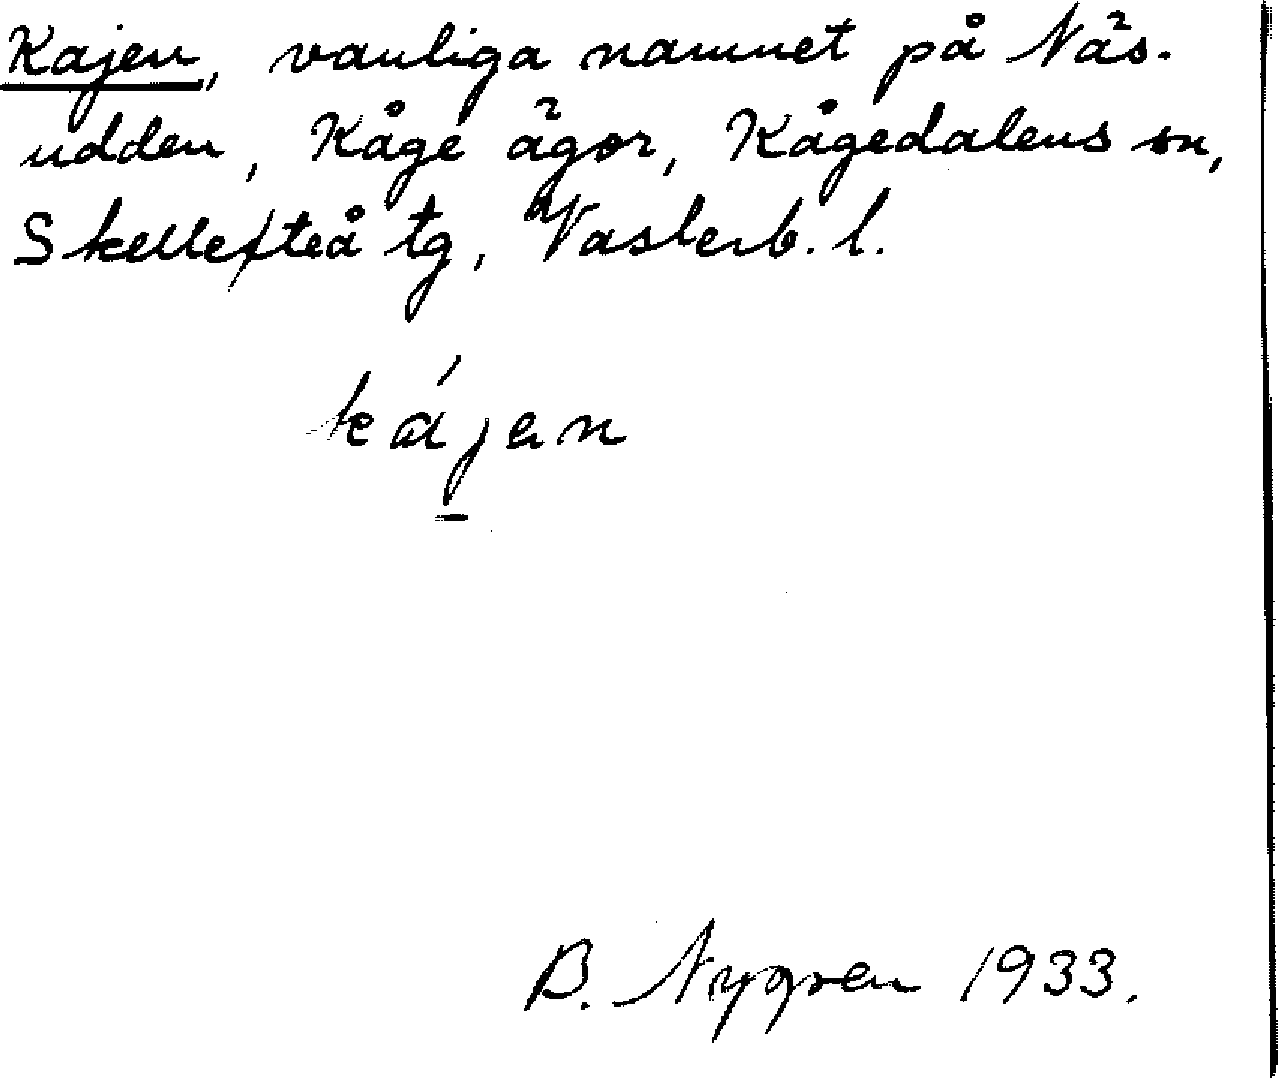 Kajen, vanliga namnet på Näs-
udden, Kåge ägor, Kågedalens sn,
Skellefteå tg, Västerb. l.
kájen
B. Nygren 1933.